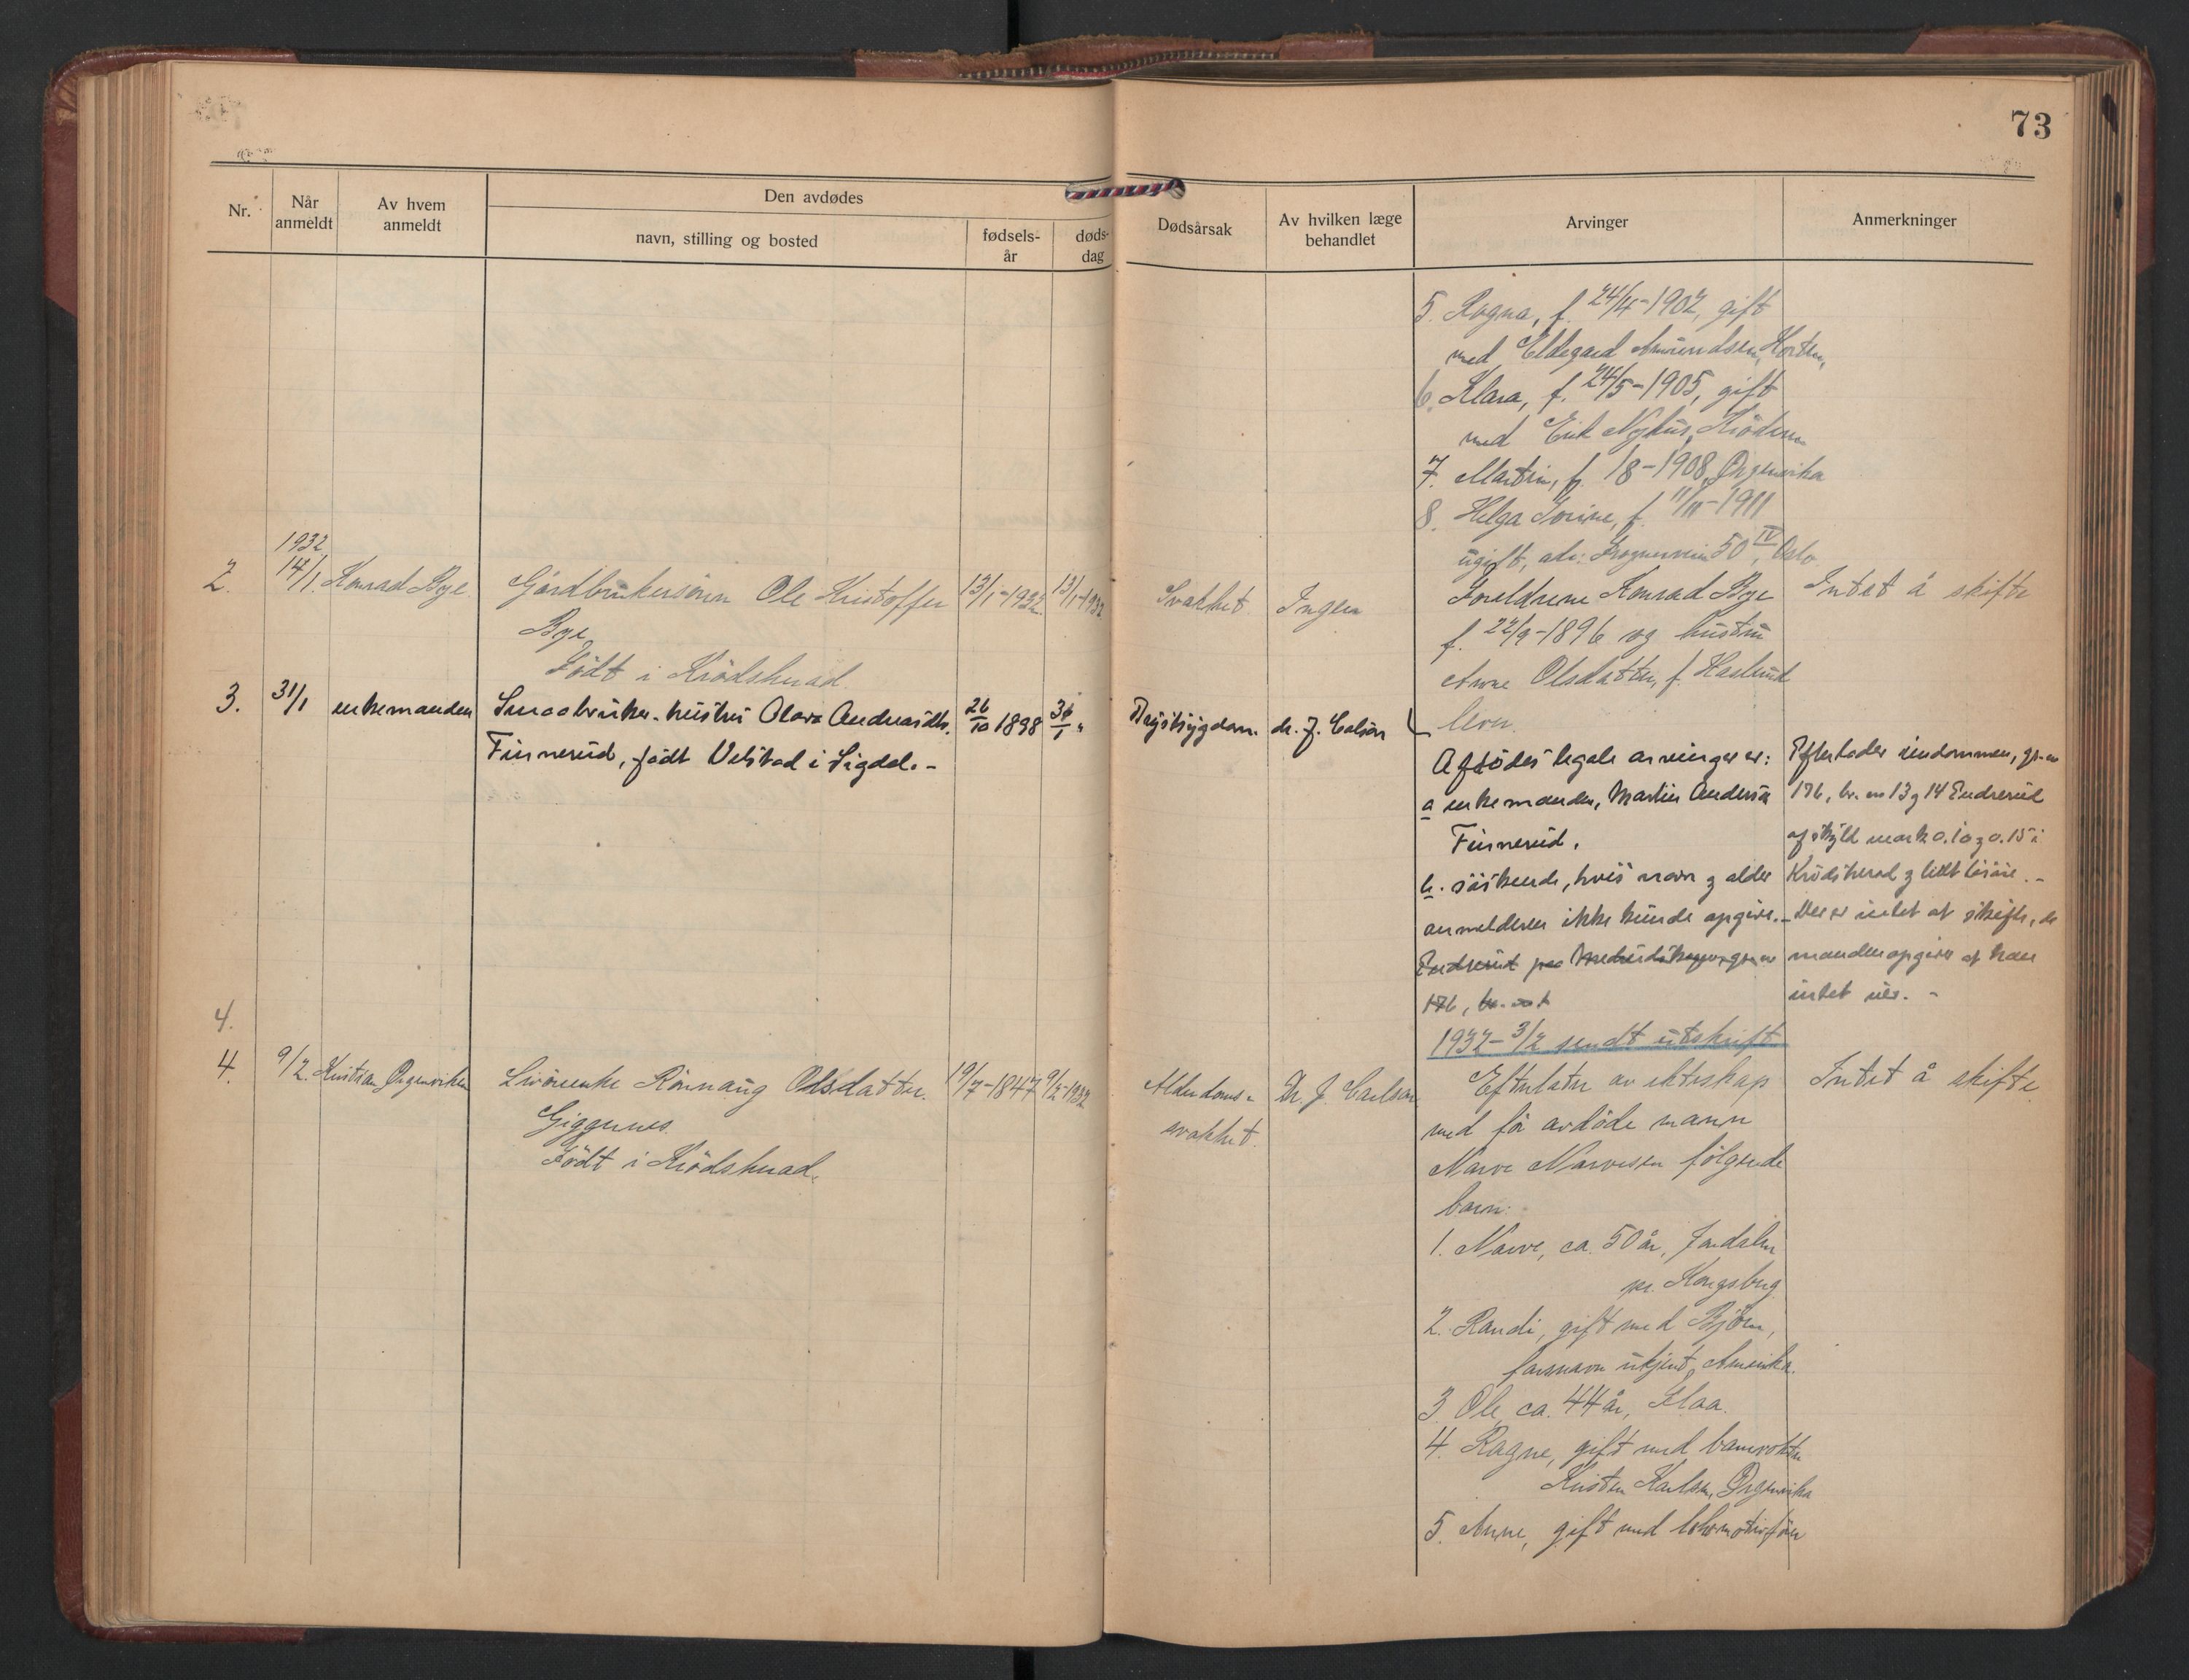 73
Nr.
Når anmeldt
Av hvem anmeldt
Den avdødes
navn, stilling og bosted
fødselsår
dødsdag
Dødsårsak
Av hvilken læge behandlet
Arvinger
Anmerkninger
5. Ragna, f. 24/4-1902, gift
med Eldegard Amundsen, Horten,
6. Klara, f. 24/5-1905, gift
med Erik Nyhus, Kröderen
7. Martin, f. 1/8-1908, Ørgenvika
8. Helga Sorine, f. 11/11-1911
ugift, adr: 50 IV, Oslo
1932
2. 14/1. Konrad Bye. Gårdbrukersönn Ole Kristoffer 13/1-1932. 13/1-1932 Svakhet. Ingen Foreldrene Konrad Bye Intet å skifte
Bye f. 22/9-1896 og hustru
Født i Krödsherad. Anne Olsdatter, f. Haslerud
3. 31/1 enkemanden Smaabruker-hustru Olava Andreasdtr. 26/10 1898 30/1 " Brystsygdom. dr. J. Carlson lever.
Finnerud, födt Velstad i Sigdal. -
Afdödes legale arvinger er: Efterlader eiendommen, gr.nr
a enkemanden, Martin Andersen 176, br. nr 13 og 14 Endrerud
Finnerud. af skyld mark 0.10 og 0.15 i
b. söskende, hvis navn og alder Krödsherad og litt lösöre. -
anmelderen ikke kunde opgive. - Der er intet at skifte, da
Endrerud paa gr.nr manden opgiver at han
176, br. nr 1 intet eier. -
4.
1932 - 3/2 sendt utskrift
4. 9/2. Kristian Ørgenviken Livörsenke Rönnaug Olsdatter. 19/7-1847 9/2-1932 Alderdoms- Dr. J. Carlson Efterlater av ekteskap Intet å skifte
Giggernes. svakhet. med før avdöde mann
Født i Krödsherad. Narve Narvesen fölgende
barn:
1. Narve, ca. 50 år, Jondalen
pr. Kongsberg
2. Randi, gift med Björn,
farsnavn ukjent, Amerika.
3. Ole, ca. 44 år, Flaa.
4. Ragne, gift med banevokter
Kristen Karlsen, Ørgenvika
5. Anne, gift med lokomotivförer